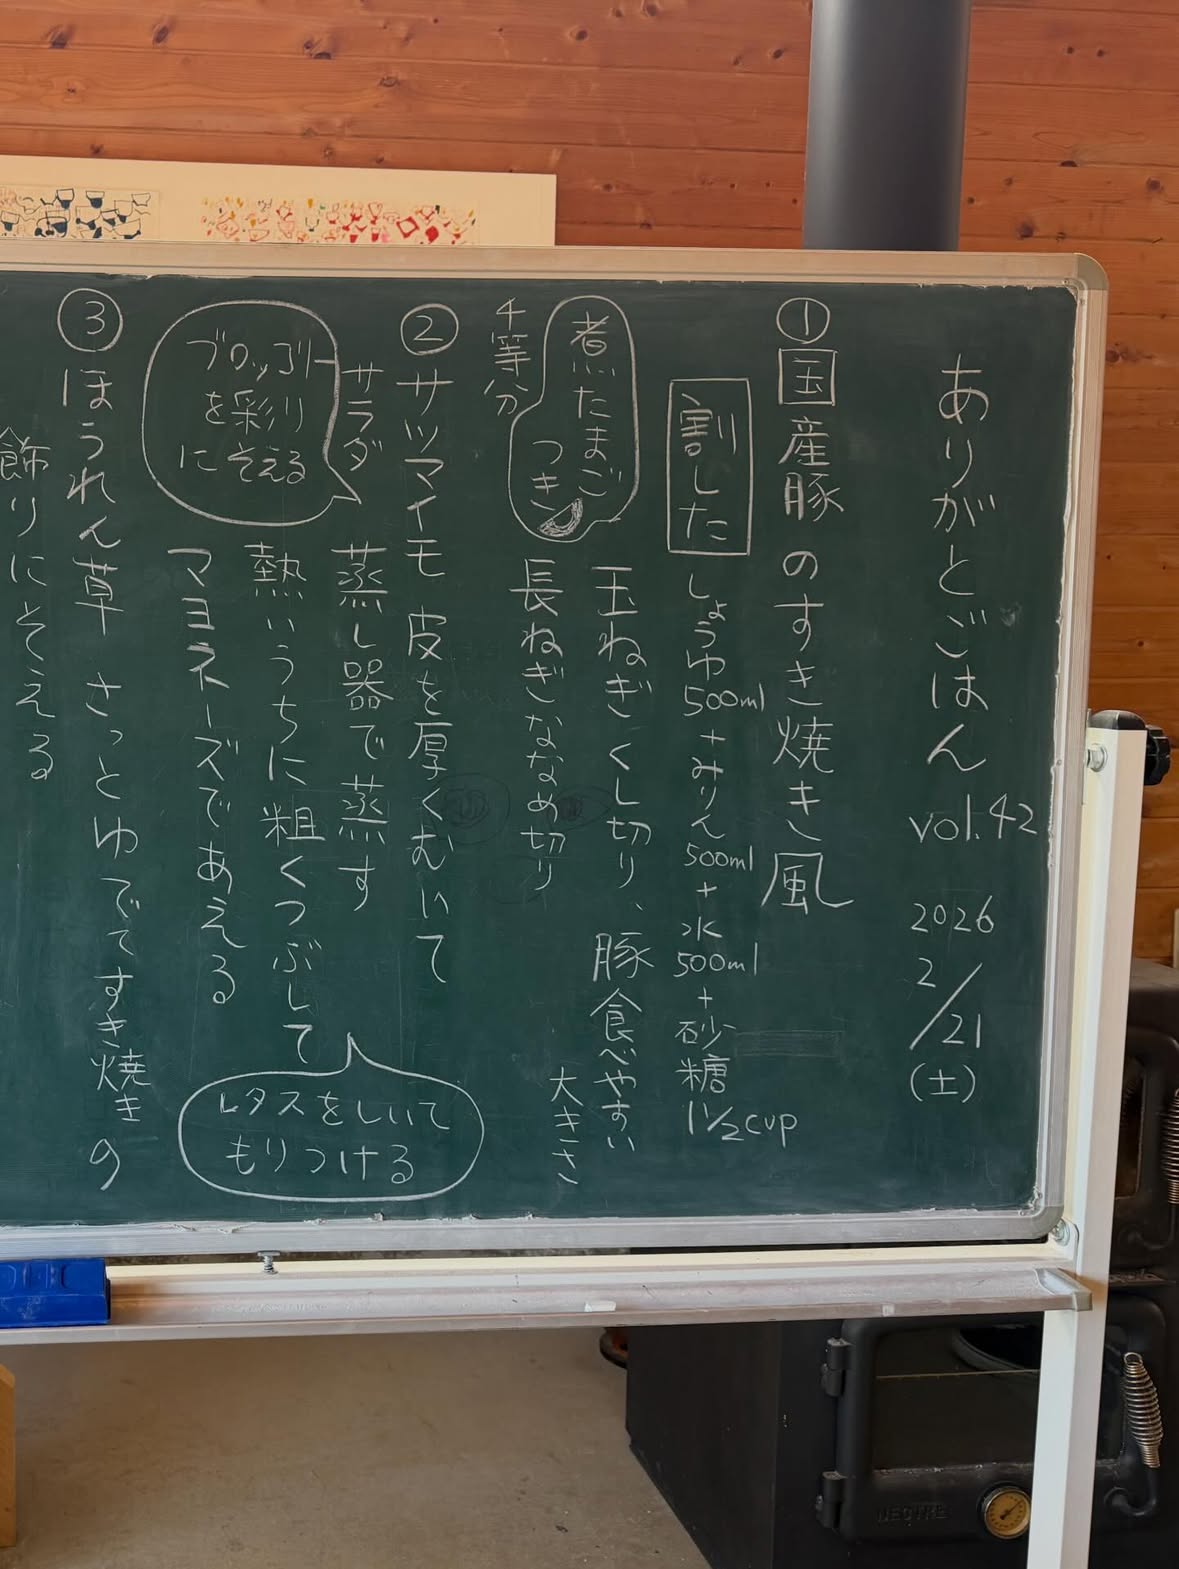 ありがとごはん vol.42 2026 2/21 (土)
① 国産豚のすき焼き風
割した しょうゆ 500ml + みりん 500ml + 水 500ml + 砂糖 1 1/2 cup
玉ねぎくし切り、豚食べやすい
大きさ
煮たまご
つき
4等分
長ねぎななめ切り
② サツマイモ 皮を厚くむいて
サラダ
蒸し器で蒸す
熱いうちに粗くつぶして
マヨネーズであえる
ブロッコリー
を彩り
にそえる
レタスをしいて
もりつける
③ ほうれん草 さっとゆでてすき焼きの
飾りにそえる
NECTRE